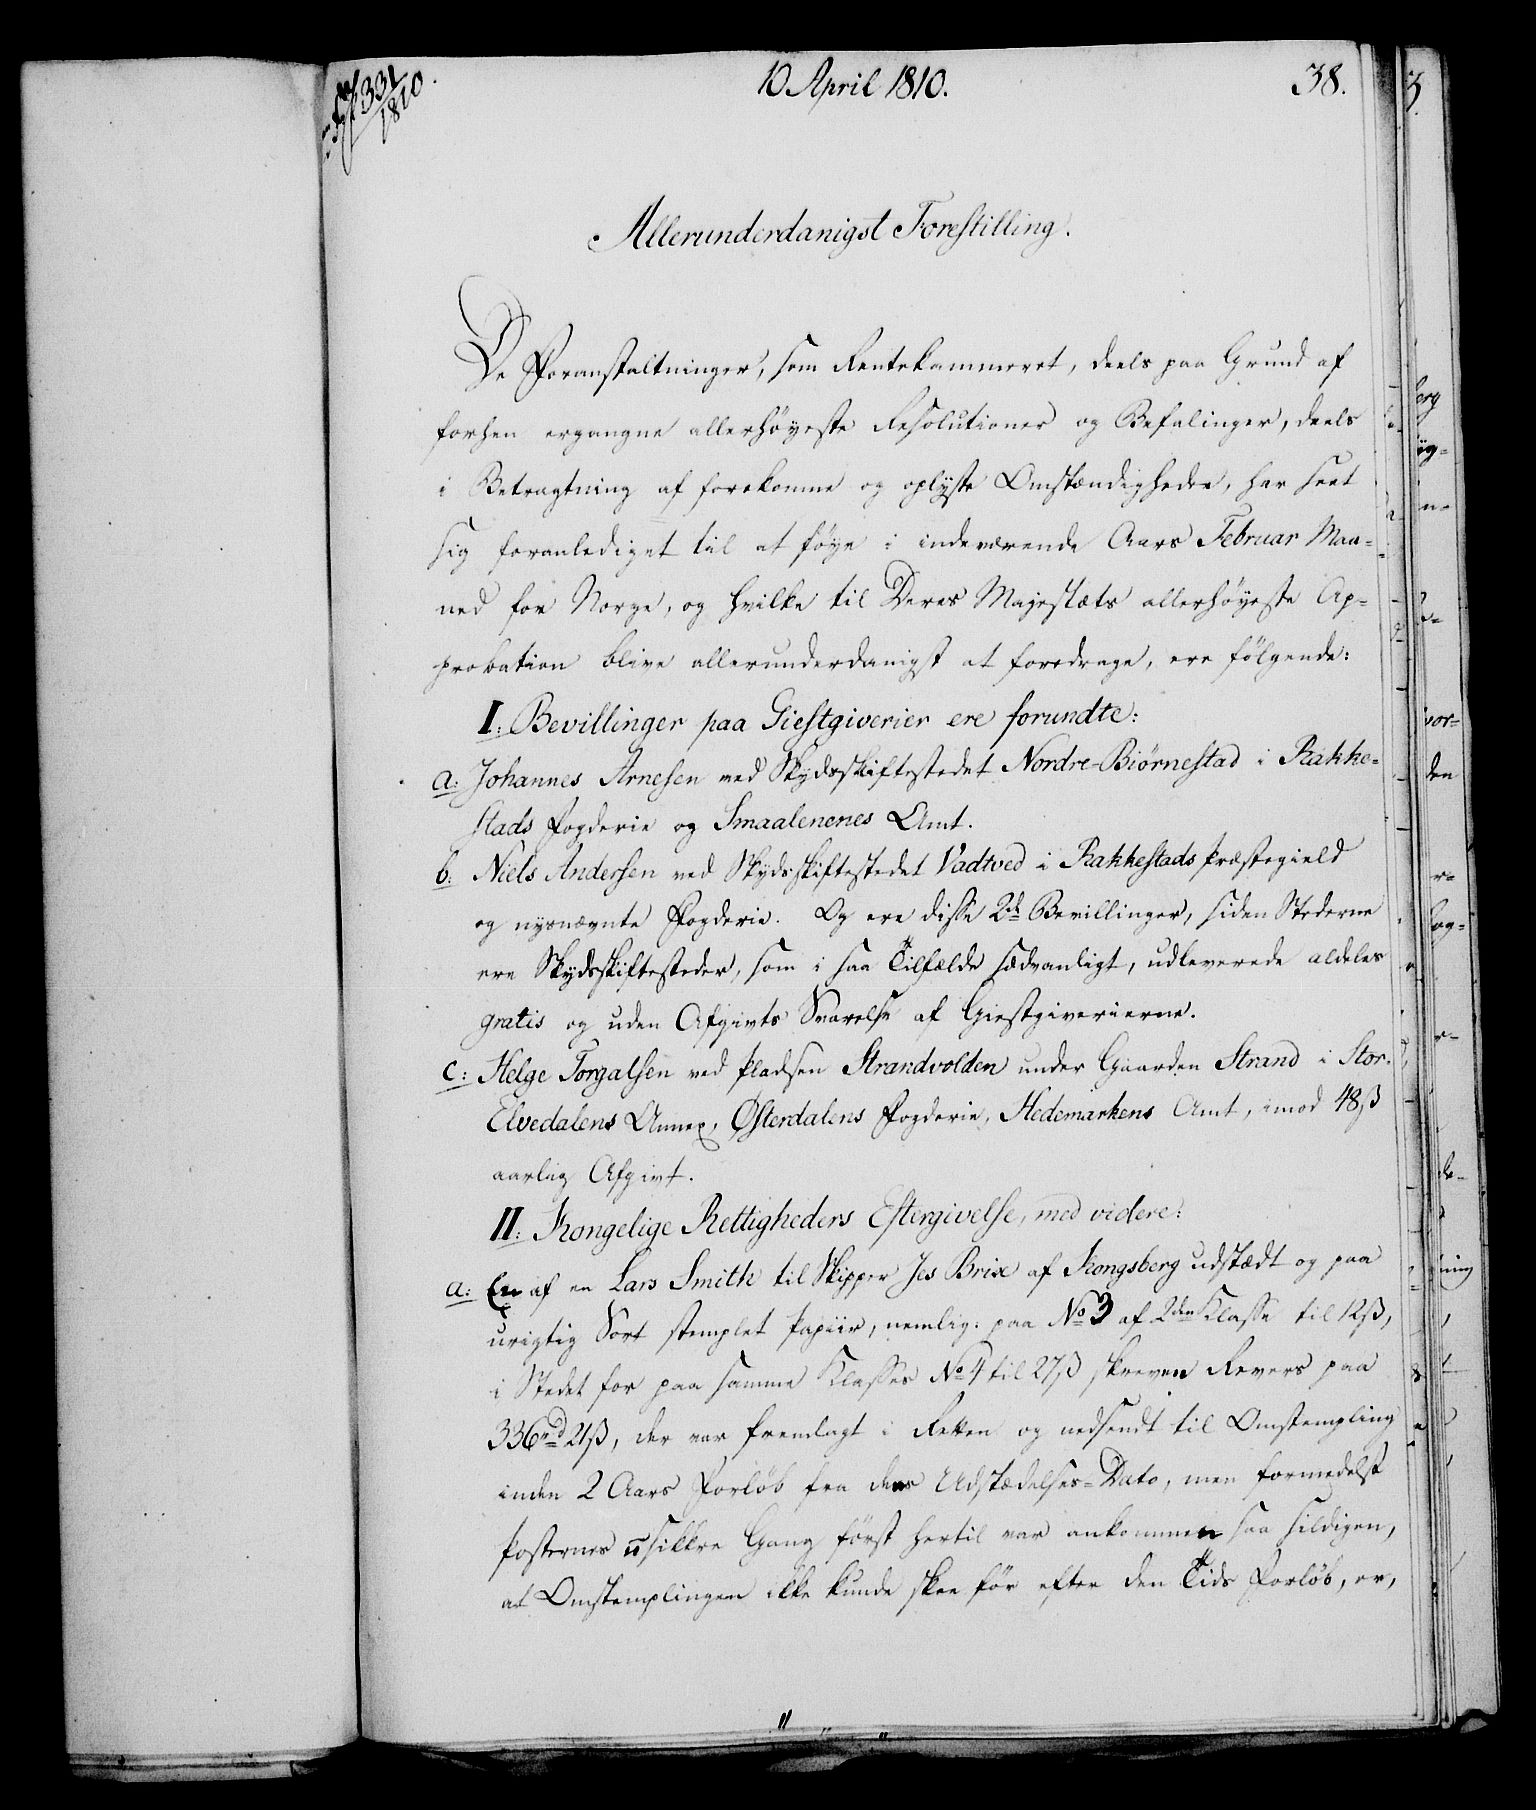 331
1810.
10 April 1810.
38.
Allerunderdanigst Forestilling.
De Foranstaltninger, som Rentekammeret, deels paa Grund af
forhen ergangne allerhøyeste Resolutioner og Befalinger, deels
i Betragtning af forekomne og oplyste Omstændigheder, har seet
sig foranlediget til at føye i indeværende Aars Februar Maa-
ned for Norge, og hvilke til Deres Majestæts allerhøyeste Ap-
probation blive allerunderdanigst at foredrage, ere følgende:
I: Bevillinger paa Giestgiverier ere forundte:
a: Johannes Arnesen ved Skydsskiftestedet Nordre-Biørnestad i Rakke-
stads Fogderie og Smaalenenes Amt.
b: Niels Andersen ved Skydsskiftestedet Vadtved i Rakkestads Præstegield
og nysnævnte Fogderie. Og ere disse 2de Bevillinger, siden Stederne
ere Skydsskiftesteder, som i saa Tilfælde sædvanligt, udleverede aldeles
gratis og uden Afgivts Svarelse af Giestgiverierne.
c: Helge Torgalsen ved Pladsen Strandvolden under Gaarden Strand i Stor-
Elvedalens Annex, Østerdalens Fogderie, Hedemarkens Amt, imod 48 ß
aarlig Afgivt.
II: Kongelige Rettigheders Eftergivelse, med videre:
a: En af en Lars Smith til Skipper Jes Brix af Kongsberg udstædt og paa
urigtig Sort stemplet Papiir, nemlig: paa No 3 af 2den Klasse til 12 ß,
i Stedet for paa samme Klasses No 4 til 27 ß skreven Revers paa
336 rd 21 ß, der var fremlagt i Retten og nedsendt til Omstempling
inden 2 Aars Forløb fra dens Udstædelses-Dato, men formedelst
Posternes usikkre Gang først hertil var ankommen saa sildigen,
at Omstemplingen ikke kunde skee før efter den Tids Forløb, er,